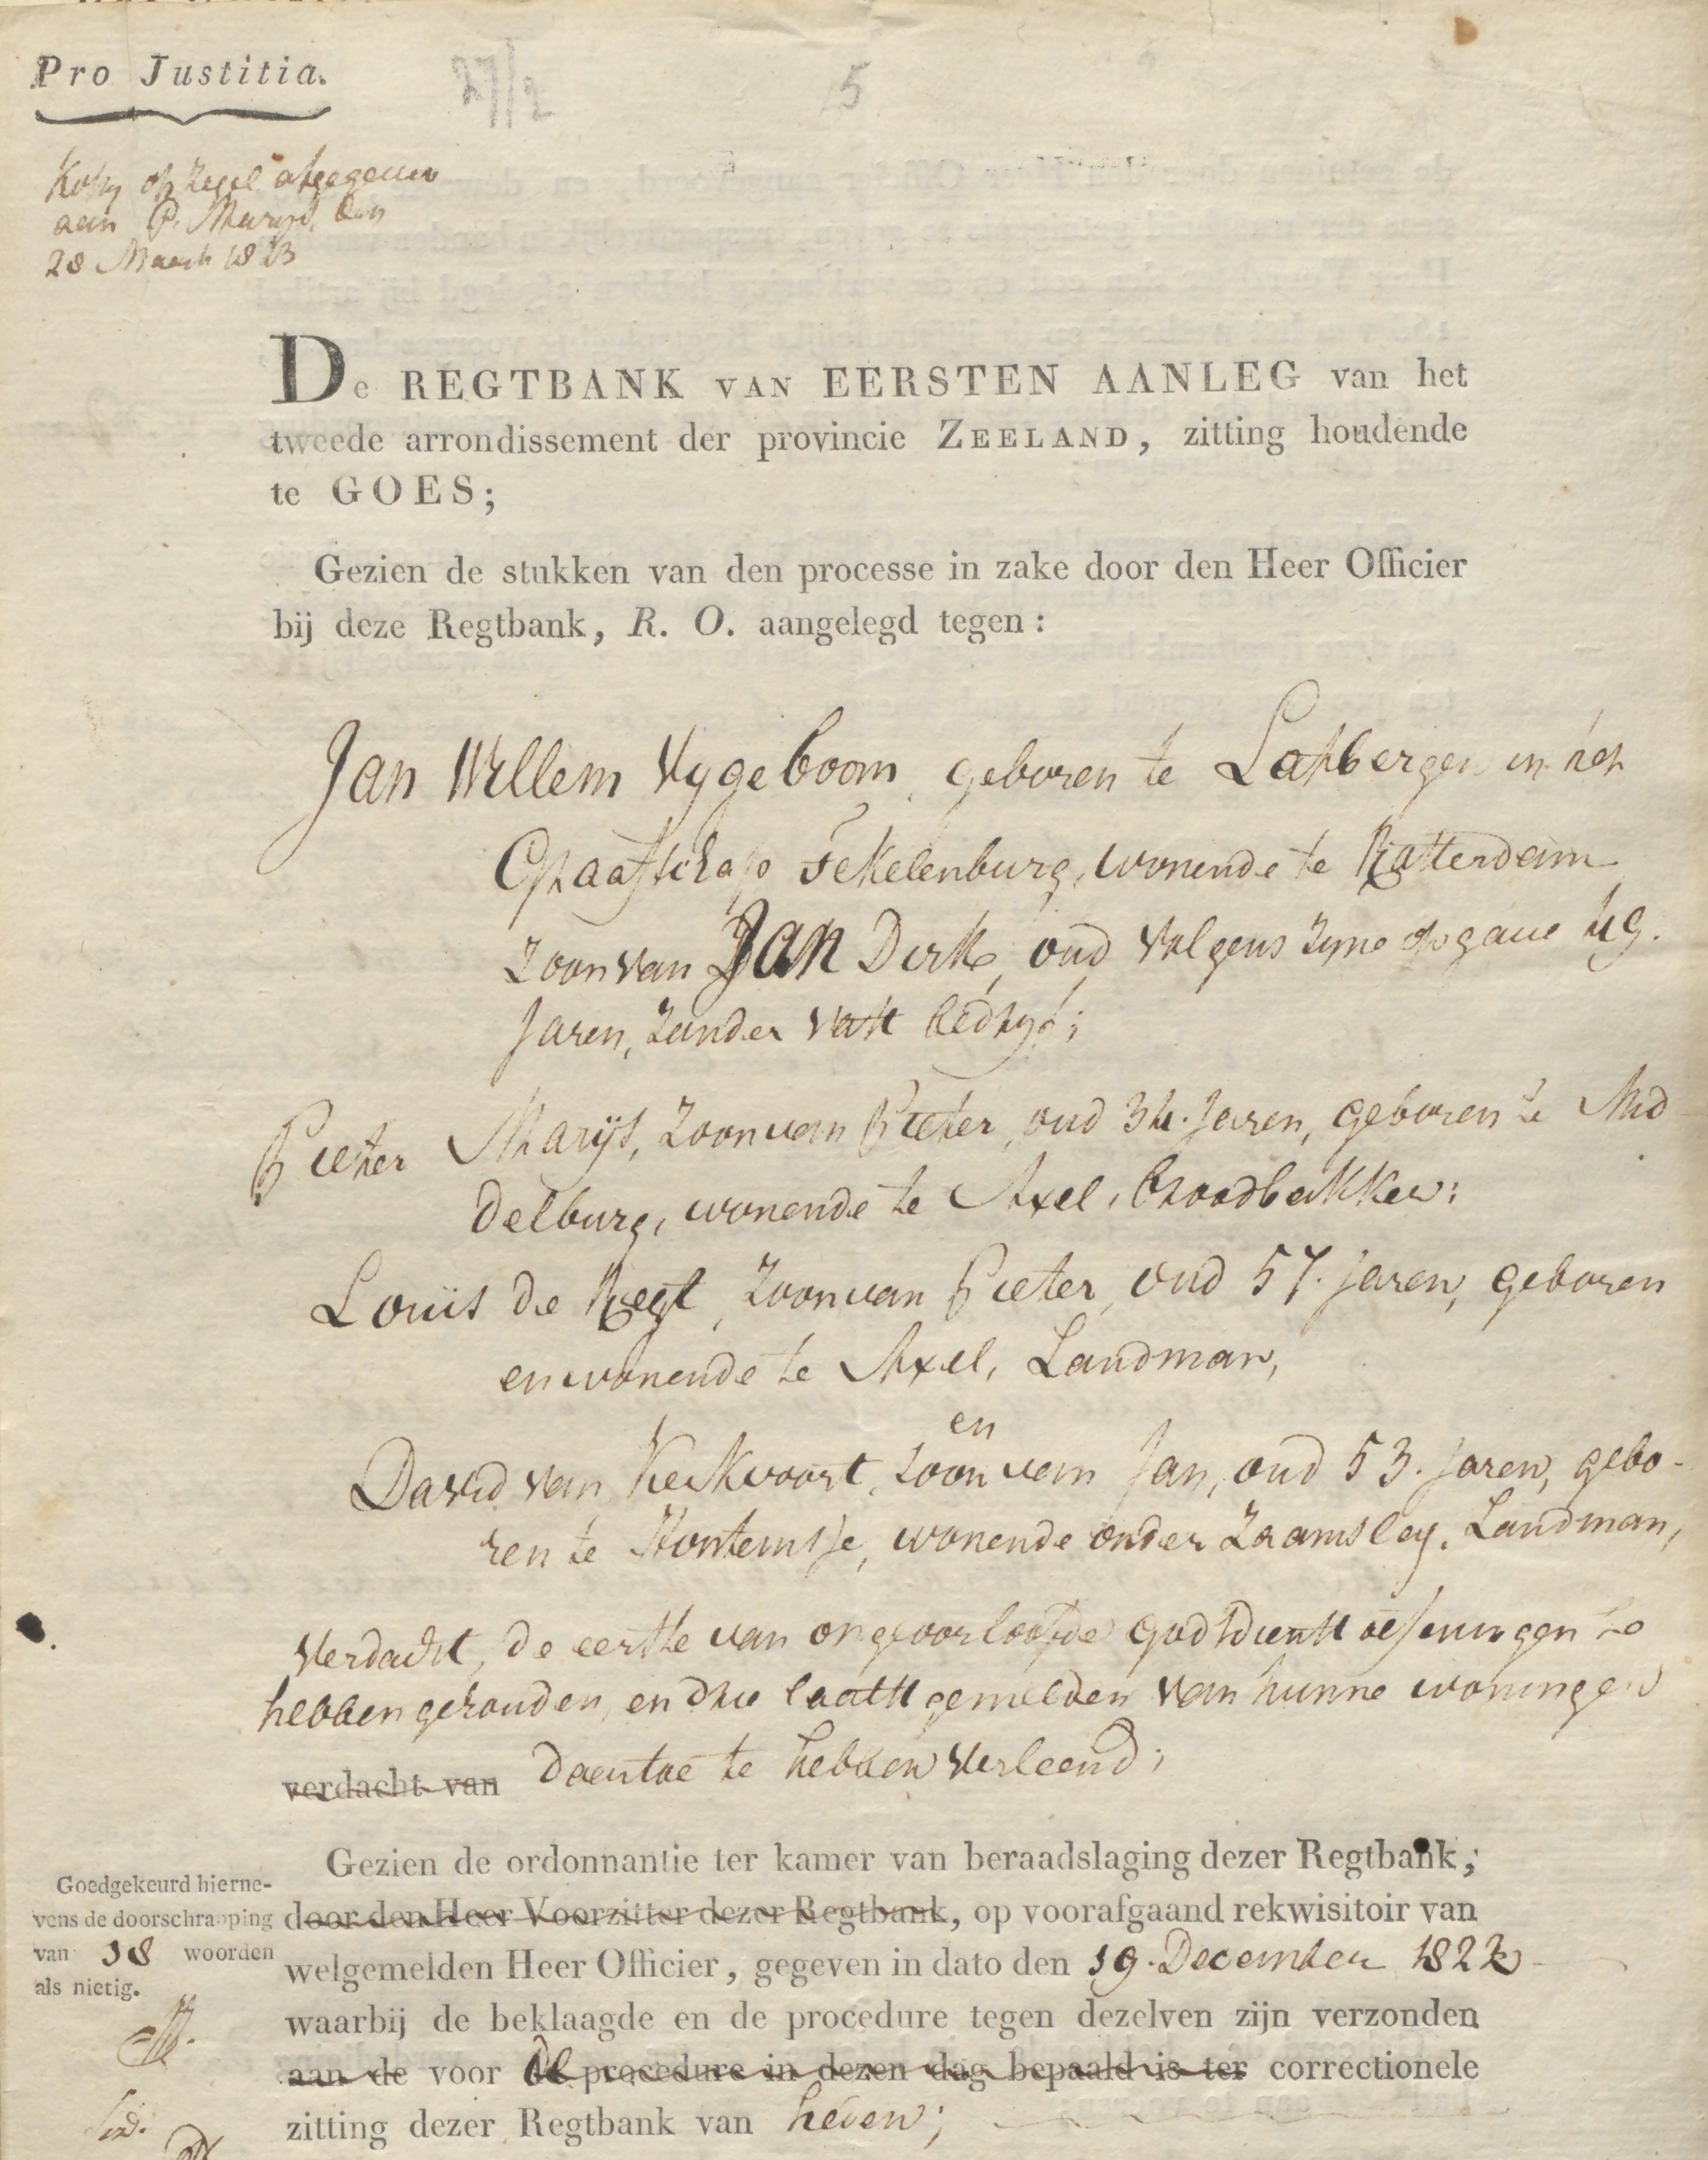 Pro Justitia.
27/2
5
Kopij op zegel afgegeven
aan P. Marijs, den
28 Maart 1823
De REGTBANK VAN EERSTEN AANLEG van het
tweede arrondissement der provincie ZEELAND, zitting houdende
te GOES;
Gezien de stukken van den processe in zake door den Heer Officier
bij deze Regtbank, R. O. aangelegd tegen:
Jan Willem Vygeboom, geboren te Latbergen in het
Graafschap Tekelenburg, wonende te Rotterdam
Zoon van Jan Dirk, oud volgens zyne opgave 49.
Jaren, zonder vast bedryf;
Pieter Marijs, Zoon van Pieter, oud 34. Jaren, geboren te Mid-
delburg, wonende te Axel, broodbakker;
Louis de Regt, Zoon van Pieter, oud 57. jaren, geboren
en wonende te Axel, Landman,
en
David van Kerkvoort, zoon van Jan, oud 53. Jaren, gebo-
ren te Hontenisse, wonende onder Zaamslag, Landman,
Verdacht, de eerste van ongeoorloofde godsdienst oefeningen te
hebben gehouden, en drie laatst gemelden van hunne woningen
verdacht van daartoe te hebben verleend;
Gezien de ordonnantie ter kamer van beraadslaging dezer Regtbank,
door den Heer Voorzitter dezer Regtbank, op voorafgaand rekwisitoir van
welgemelden Heer Officier, gegeven in dato den 19. December 1822
waarbij de beklaagde en de procedure tegen dezelven zijn verzonden
aan de voor de procedure in dezen dag bepaald is ter correctionele
zitting dezer Regtbank van heden;
Goedgekeurd hierne-
vens de doorschrapping
van 18 woorden
als nietig.